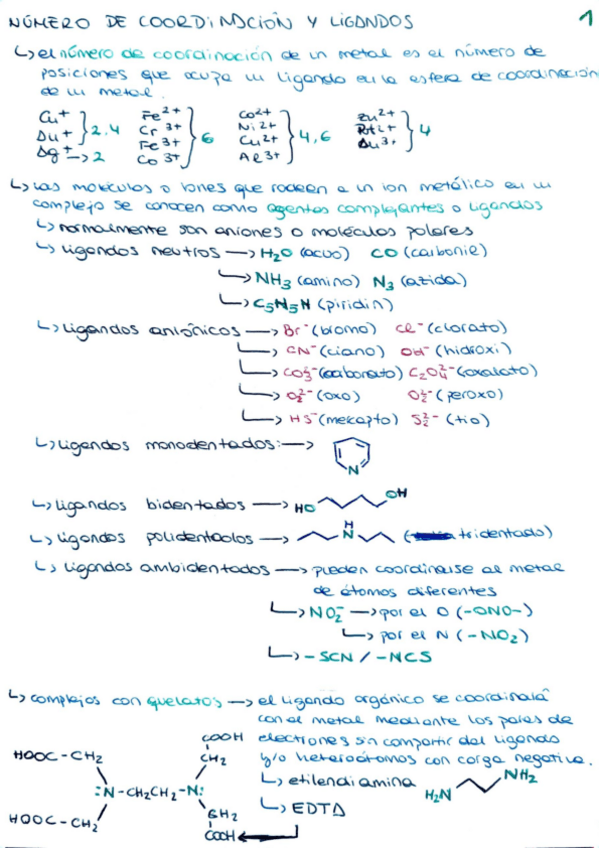 NÚMERO DE COORDINACIÓN Y LIGANDOS 1
↳ el número de coordinación de un metal es el número de
posiciones que ocupa un ligando en la esfera de coordinación
de un metal.
Cu+ Fe2+ Co2+ Zn2+
Au+ } 2,4 Cr3+ Ni2+ Pt2+ } 4
Ag+ → 2 Fe3+ } 6 Cu2+ } 4,6 Au3+
Co3+ Al3+
↳ Las moléculas o iones que rodeen a un ion metálico en un
complejo se conocen como agentes complejantes o ligandos
↳ normalmente son aniones o moléculas polares
↳ ligandos neutros → H2O (acuo) CO (carbonil)
↳ NH3 (amino) N3 (azida)
↳ C5H5N (piridin)
↳ ligandos aniónicos → Br- (bromo) Cl- (clorato)
↳ CN- (ciano) OH- (hidroxi)
↳ CO3 2- (carbonato) C2O4 2- (oxalato)
↳ O2 2- (oxo) O2 2- (peroxo)
↳ HS- (mekapto) S2 2- (tio)
↳ ligandos monodentados: → N
↳ ligandos bidentados → HO OH
↳ ligandos polidentados → H N (tridentado)
↳ ligandos ambidentados → pueden coordinarse al metal
de átomos diferentes
↳ NO2- → por el O (-ONO-)
↳ por el N (-NO2)
↳ -SCN / -NCS
↳ complejos con quelatos → el ligando orgánico se coordinará
con el metal mediante los pares de
electrones sin compartir del ligando
y/o heteroátomos con carga negativa.
↳ etilendiamina H2N NH2
↳ EDTA
COOH
HOOC-CH2 CH2
:N-CH2CH2-N:
HOOC-CH2 CH2
COOH